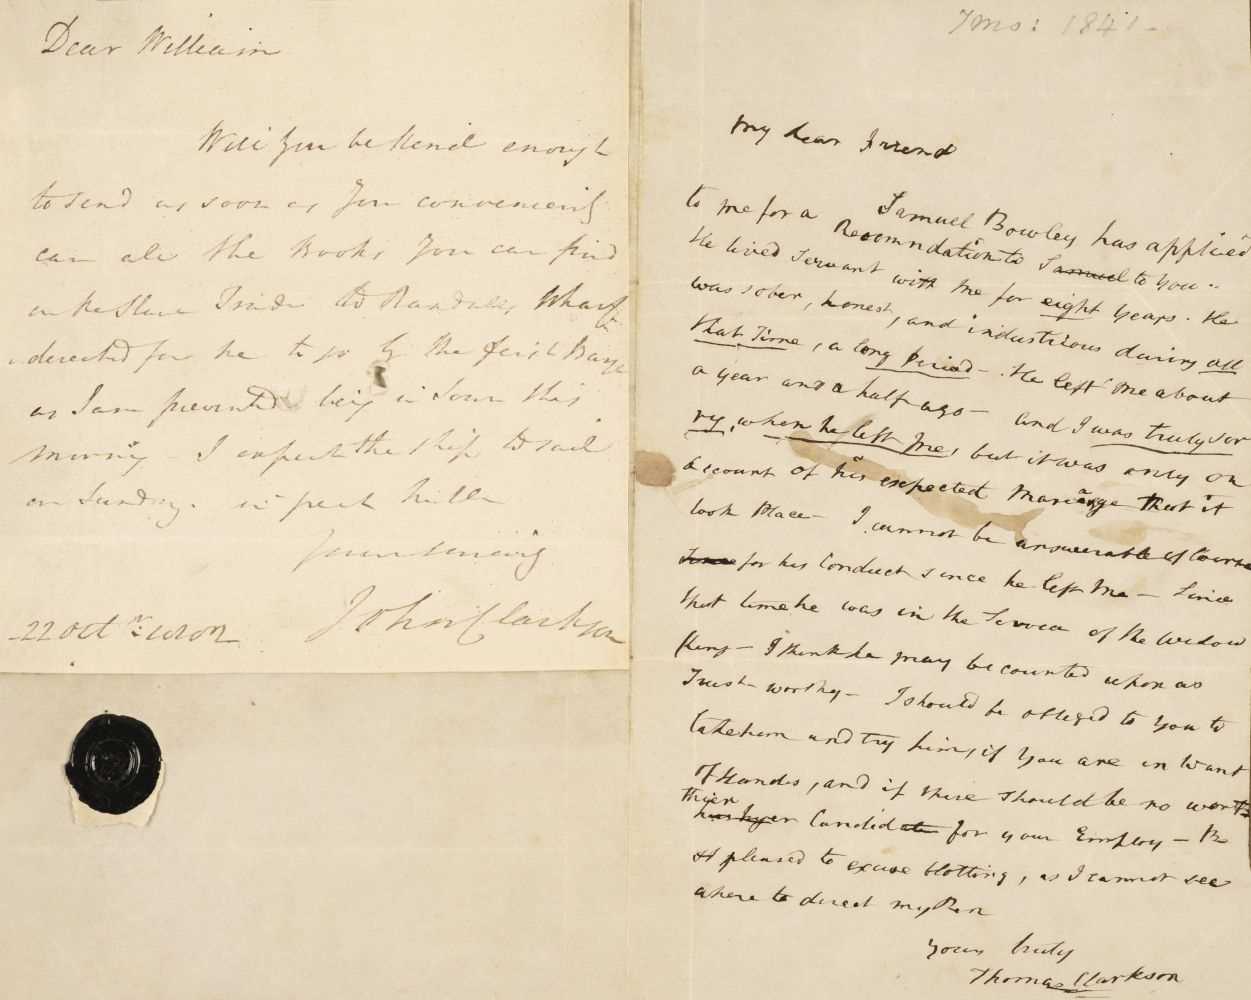 Dear William
Will you be kind enough
to send as soon as you conveniently
can all the Books you can find
on the Slave Trade to Randall's Wharf
directed for me to go by the first Barge
as I am prevented being in Town this
morning - I expect the ship to sail
on Sunday. in great haste
yours sincerely
John Clarkson
22 Oct
7 mo: 1841 -
My dear Friend
Samuel Bowley has applied
to me for a Recommdation to Samuel to you -
He lived servant with me for eight years. He
was sober, honest, and industrious during all
that time, a long period - He left me about
a year and a half ago - and I was truly sor
ry, when he left me, but it was only on
account of his expected Marriage that it
took Place - I cannot be answerable of course
for his Conduct since he left me - Since
that time he was in the Service of the Widow
- I think he may be counted upon as
Trust-worthy - I should be obliged to you to
take him and try him, if you are in want
of Hands, and if there should be no wor
thier Candidate for your Employ - Be
pleased to excuse blotting, as I cannot see
where to direct my Pen
Yours truly
Thomas Clarkson